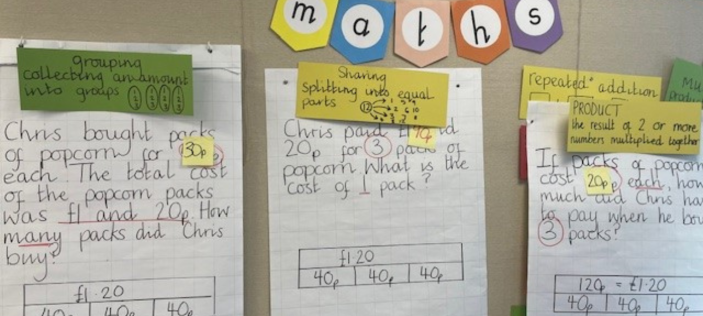 maths
grouping
collecting an amount
into groups
Chris bought packs
of popcorn for 30p
each. The total cost
of the popcorn packs
was £1 and 20p. How
many packs did Chris
buy?
£1.20
40p 40p 40p
Sharing
splitting into equal
parts
12
Chris paid
20p for 3 packs of
popcorn. What is the
cost of 1 pack?
£1.20
40p 40p 40p
repeated addition
PRODUCT
the result of 2 or more
numbers multiplied together
If packs of popcorn
cost 20p each, how
much did Chris have
to pay when he
3 packs?
120p = £1.20
40p 40p 40p